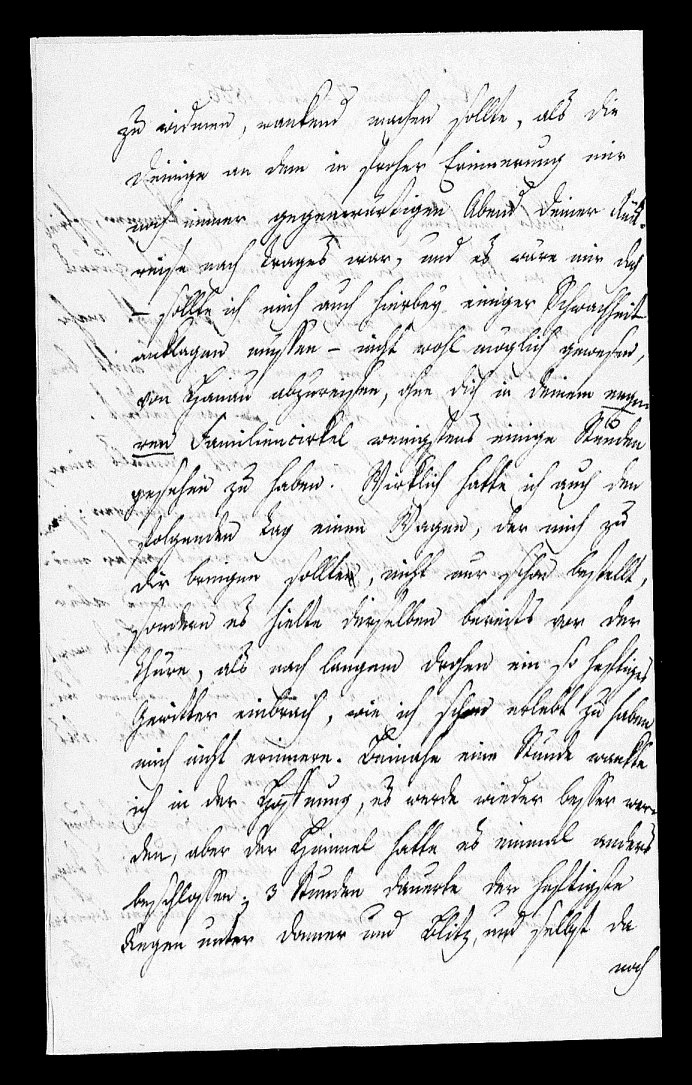 zu widmen, wankend machen sollte, als die
Deinige an dem in froher Erinnerung mir
noch immer gegenwärtigen Abend Deiner Rück-
reise nach Trages war, und es wäre mir doch
– sollte ich mich auch hierbey einiger Schwachheit
anklagen müssen – nicht wohl möglich gewesen,
von Hanau abzureisen, ohne Dich in Deinem enge-
ren Familiencirkel wenigstens einige Stunden
gesehen zu haben. Wirklich hatte ich auch den
folgenden Tag einen Wagen, der mich zu
Dir bringen sollte, nicht nur schon bestellt,
sondern es hielte derselben bereits vor der
Thüre, als nach langem Drohen ein so heftiges
Gewitter einbrach, wie ich schon erlebt zu haben
mich nicht erinnere. Beinahe eine Stunde wankte
ich in der Hoffnung, es werde wieder besser wer-
den, aber der Himmel hatte es einmal anders
beschlossen; 3 Stunden dauerte der heftigste
Regen unter Donner und Blitz, und selbst da
noch